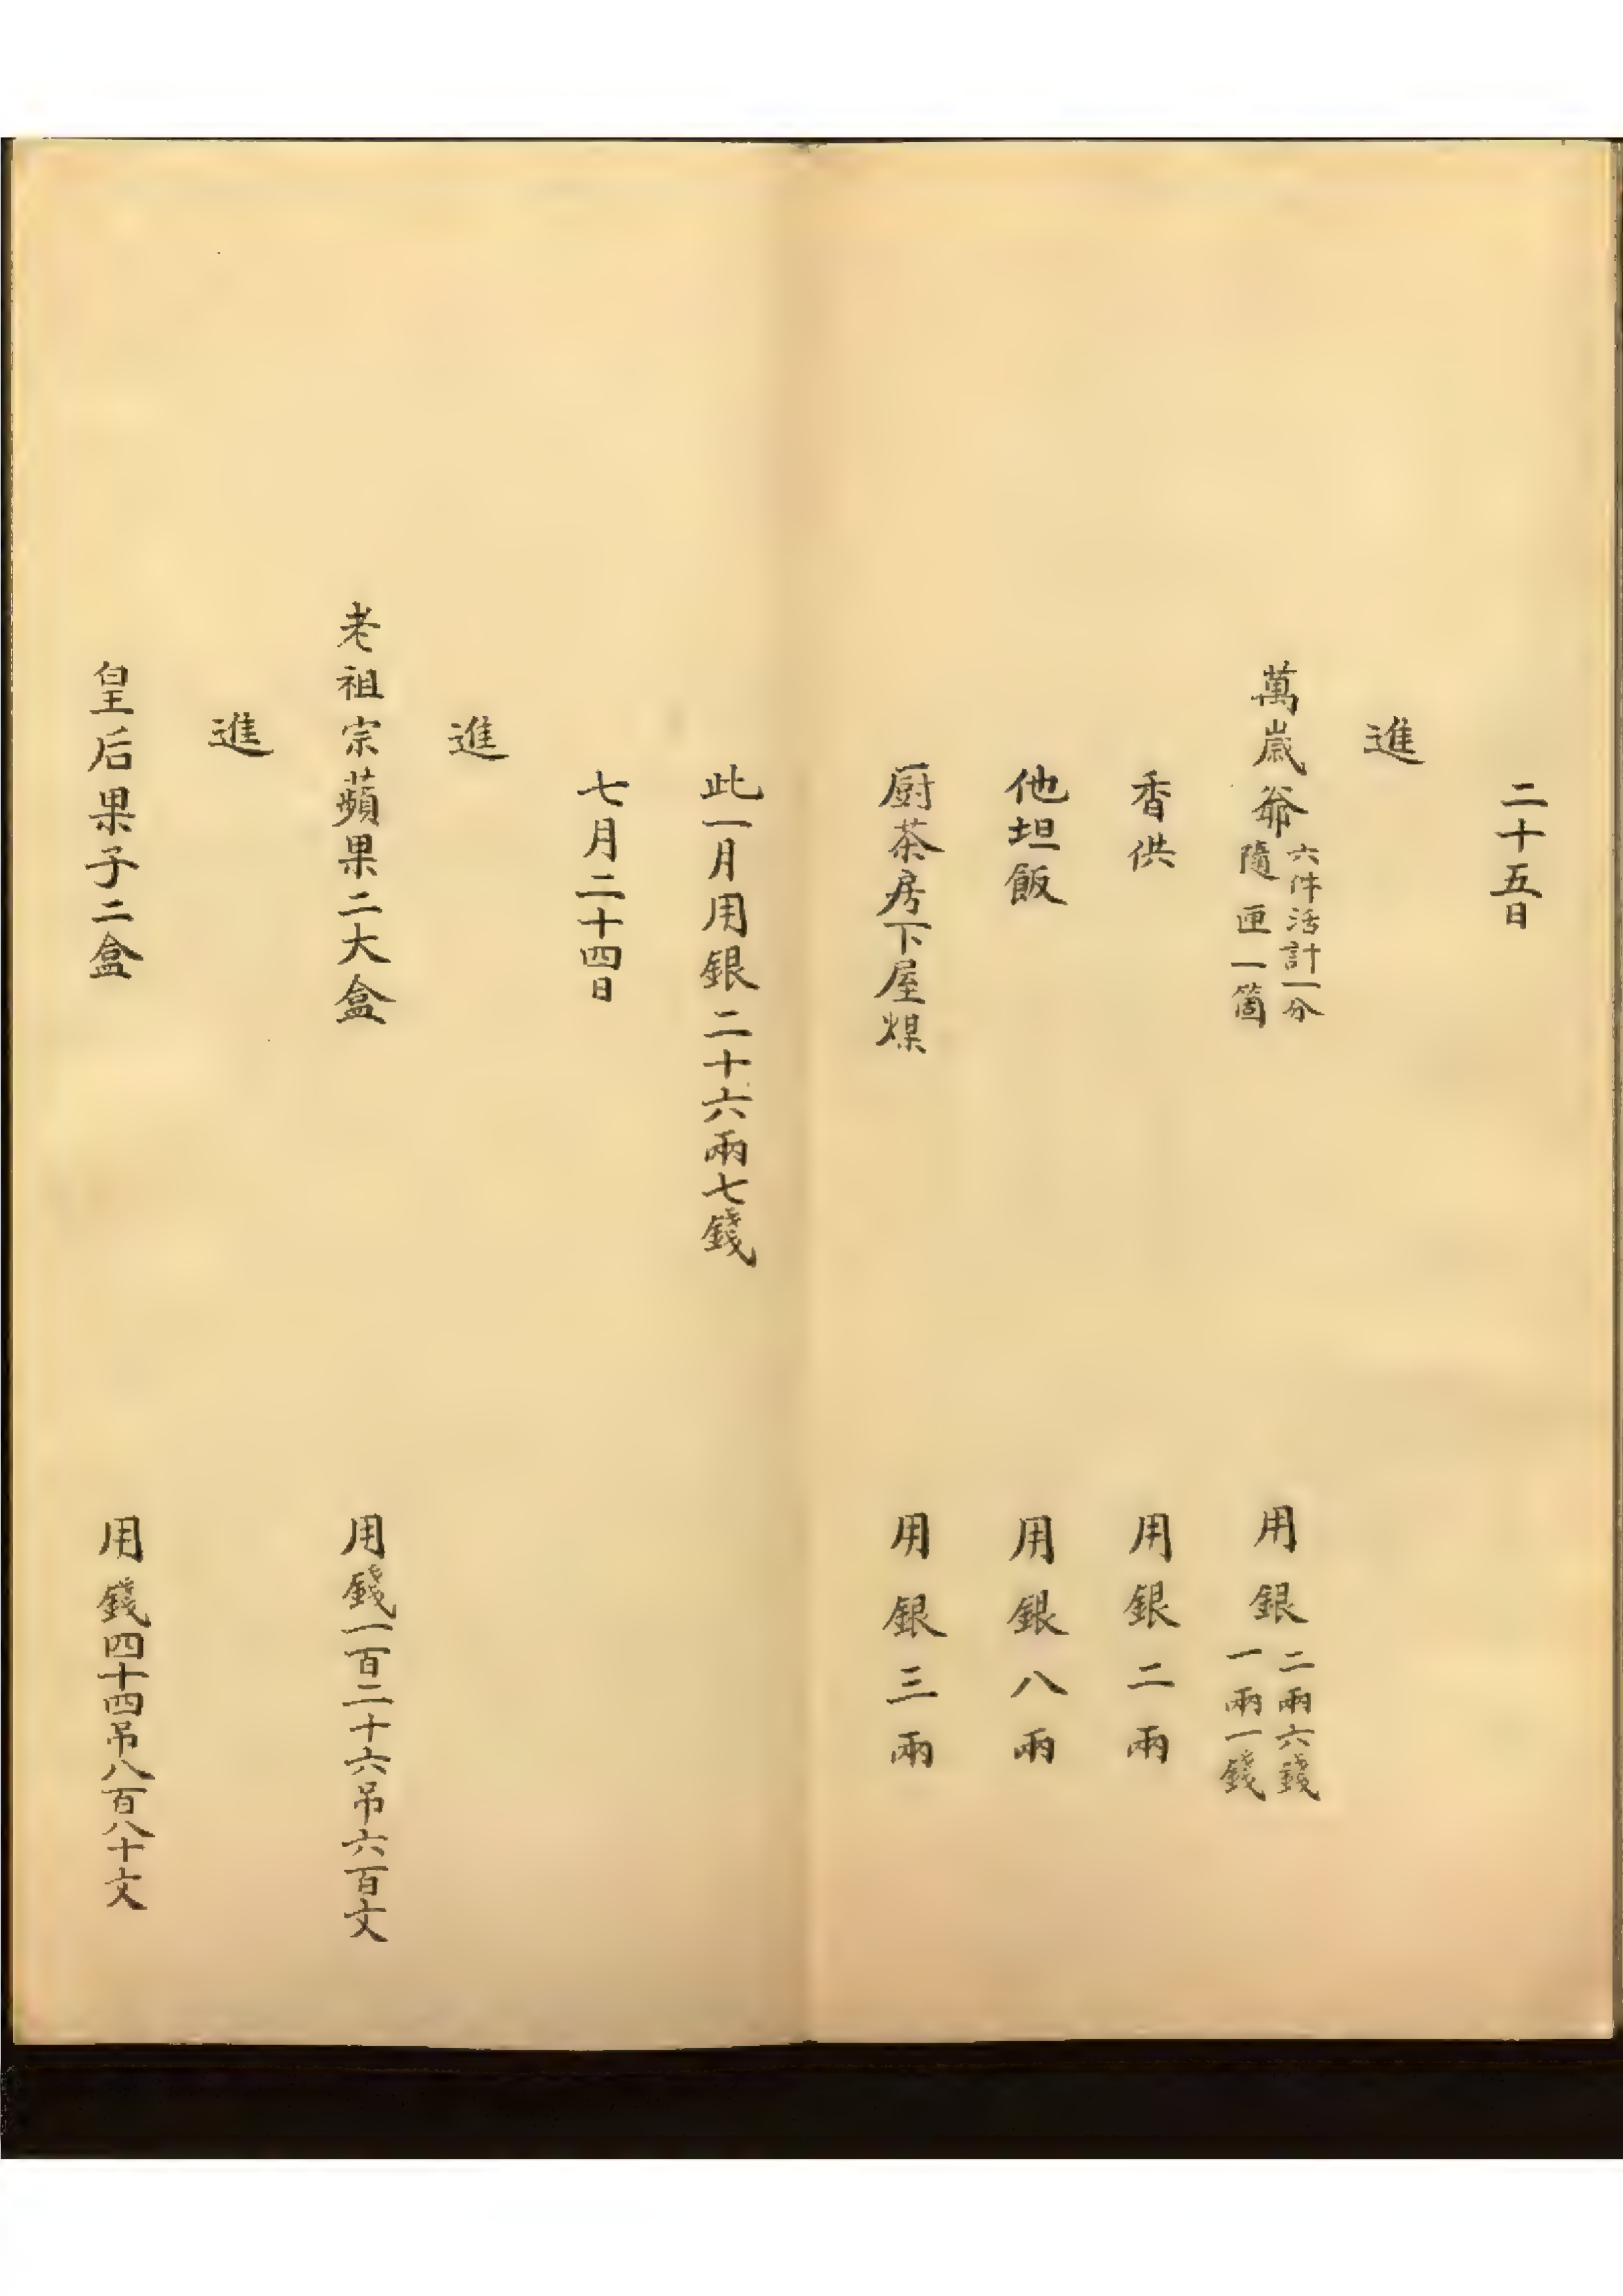 二十五日
進
萬歲爺六件活計一分隨匣一箇 用銀二兩六錢一兩一錢
香供 用銀二兩
他坦飯 用銀八兩
厨茶房下屋煤 用銀三兩
此一月用銀二十六兩七錢
七月二十四日
進
老祖宗蘋果二大盒 用錢一百二十六吊六百文
進
皇后果子二盒 用錢四十四吊八百八十文